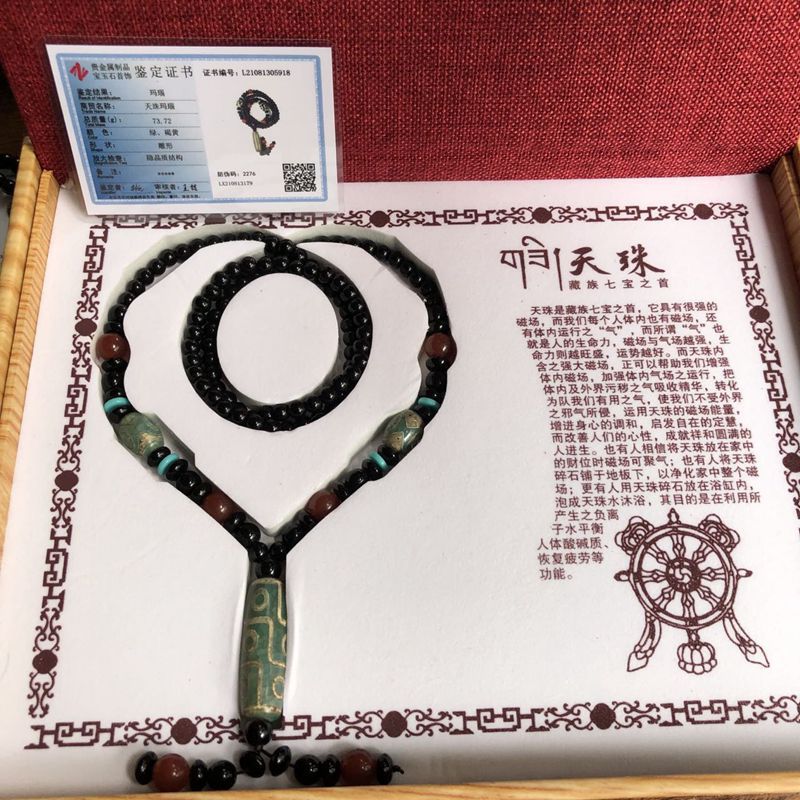 贵金属制品
宝玉石首饰 鉴定证书 证书编号: L21081305918
鉴定结果: 玛瑙
Result of Identification
商贸名称: 天珠玛瑙
Trade Name
总质量(g): 73.72
Total Mass
颜 色: 绿、褐黄
Color
形 状: 雕形
Shape
放大检查: 隐晶质结构
备 注: ****
Remarks
防伪码: 2276
LX210813179
鉴定者: 审核者:
གཟི 天珠
藏族七宝之首
天珠是藏族七宝之首，它具有很强的
磁场，而我们每个人体内也有磁场，还
有体内运行之“气”，而所谓“气”也
就是人的生命力，磁场与气场越强，生
命力则越旺盛，运势越好。而天珠内
含之强大磁场，正可以帮助我们增强
体内磁场，加强体内气场之运行，把
体内及外界污移之气吸收精华，转化
为队我们有用之气，使我们不受外界
之邪气所侵，运用天珠的磁场能量，
增进身心的调和，启发自在的定慧，
而改善人们的心性，成就祥和圆满的
人进生。也有人相信将天珠放在家中
的财位时磁场可聚气；也有人将天珠
碎石铺于地板下，以净化家中整个磁
场；更有人用天珠碎石放在浴缸内，
泡成天珠水沐浴，其目的是在利用所
产生之负离
子水平衡
人体酸碱质、
恢复疲劳等
功能。